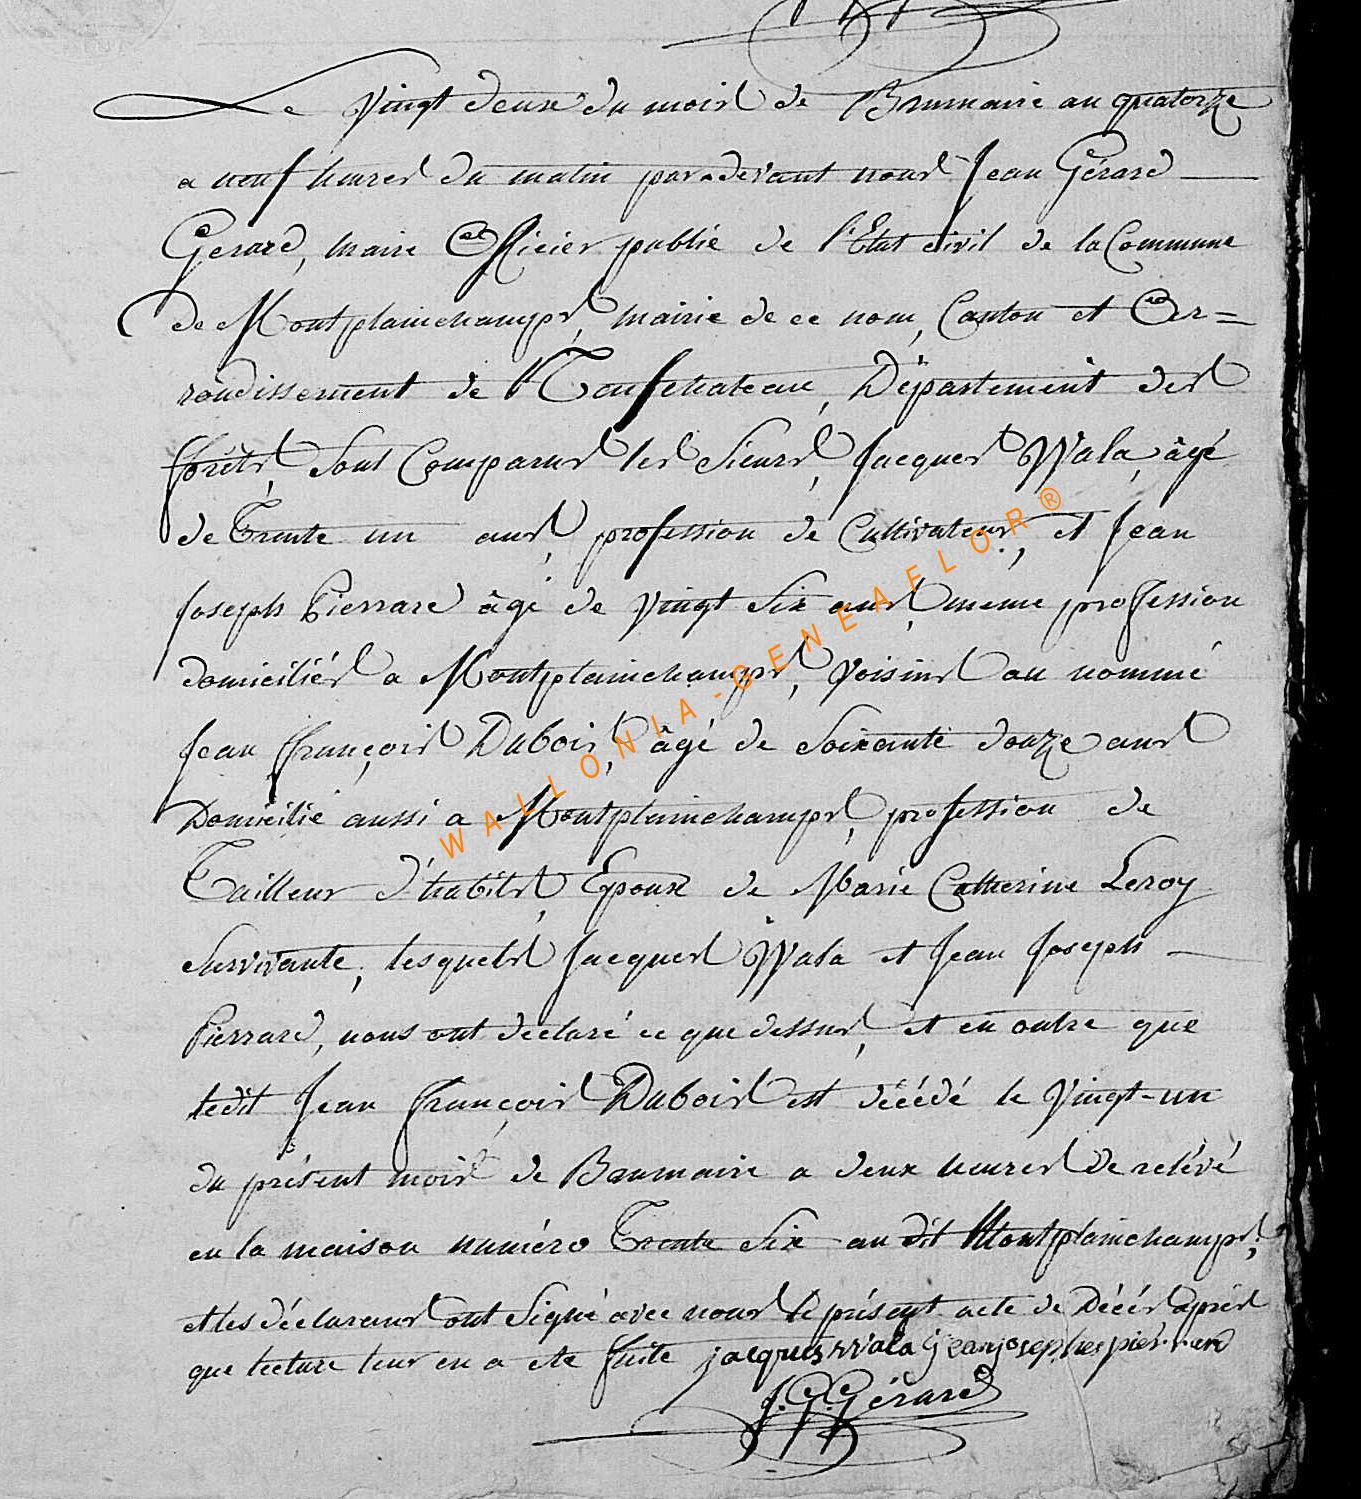 Le vingt deux du mois de Brumaire an quatorze
a neuf heures du matin par-devant nous Jean Gérard
Gerard, maire Officier public de l'Etat civil de la Commune
de Montplainchamps, mairie de ce nom, Canton et Ar=
rondissement de Neufchateau, Département des
forêts, sont Comparus les Sieurs, Jacques Wala, âgé
de Trente un ans, profession de Cultivateur, et Jean
Joseph Pierrard âgé de vingt Six ans, meme profession
domiciliés a Montplainchamps, voisins au nommé
Jean françois Dubois, âgé de Soixante douze ans
Domicilié aussi a Montplainchamps, profession de
Tailleur d'habits, Epoux de Marie Catherine Leroy
Survivante, lesquels Jacques Wala et Jean Joseph
Pierrard, nous ont declaré ce que dessus, et en outre que
ledit Jean françois Dubois est décédé le vingt-un
du présent mois de Brumaire a deux heures de relévé
en la maison numéro Trente Six au dit Montplainchamps,
et les déclarans ont Signé avec nous le présent acte de Décés après
que lecture leur en a ete faite jacques wala jean joseph pierrard
J. G. Gérard
WALLONIA-GENEAFLOR®